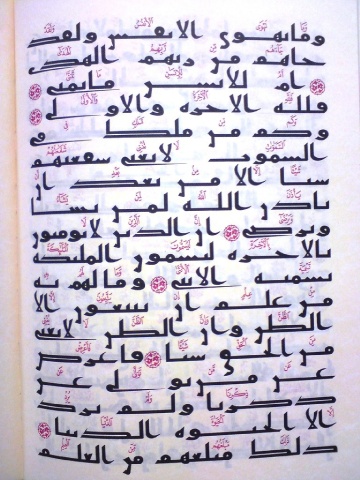 وما تهوى الانفس ولقد
جاهم من ربهم الهدى
ام للانسن ما تمنى
فلله الاخرة والاولى
وكم من ملك في
السموت لا تغنى شفعتهم
شيا الا من بعد ان
ياذن الله لمن يشا
ويرضى ان الذين لا يومنون
بالاخرة ليسمون الملئكة
تسمية الانثى وما لهم به
من علم ان يتبعون الا
الظن وان الظن لا يغنى
من الحق شيا فاعرض
عن من تولى عن
ذكرنا ولم يرد
الا الحيوة الدنيا
ذلك مبلغهم من العلم